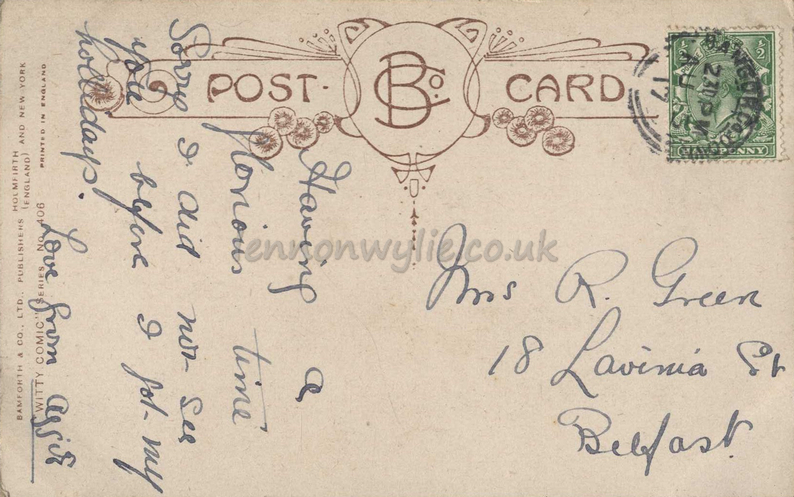 POST CARD
BCo
BANGOR CO. DOWN
HALFPENNY
Having a
glorious time
Sorry I did not see
you before I got my
hollidays.
Love from Aggie
Mrs R. Green
18 Lavinia St
Belfast.
BAMFORTH & CO., LTD., PUBLISHERS HOLMFIRTH
(ENGLAND) AND NEW YORK
"WITTY COMIC" SERIES No. 406
PRINTED IN ENGLAND
lennonwylie.co.uk